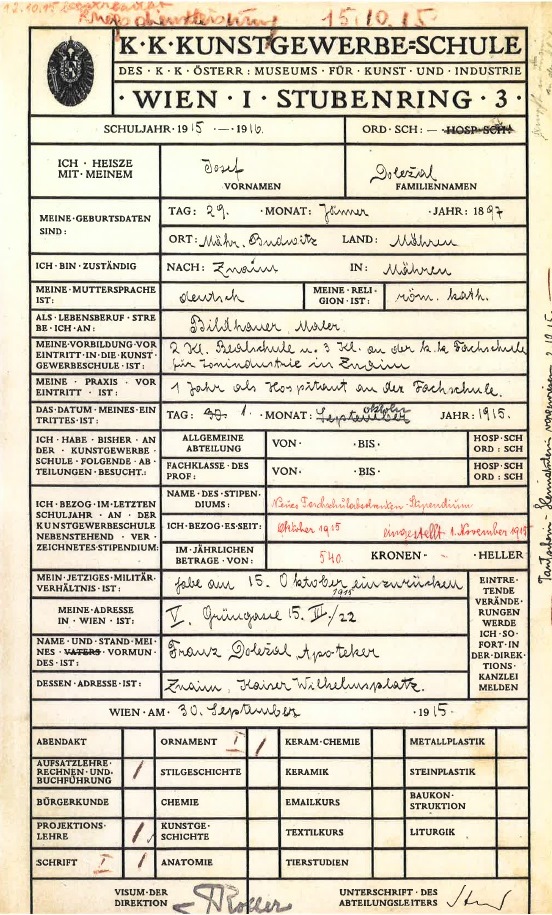 12.10.15
Kriegsdienstleistung 15.10.15
K·K·KUNSTGEWERBE=SCHULE
DES·K·K·ÖSTERR:MUSEUMS·FÜR·KUNST·UND·INDUSTRIE
·WIEN·I·STUBENRING·3·
SCHULJAHR·1915 —·1916.
ORD·SCH:— HOSP·SCH:
ICH·HEISZE
MIT·MEINEM
Josef
VORNAMEN
Doležal
FAMILIENNAMEN
MEINE·GEBURTSDATEN
SIND:
TAG: 29. ·MONAT: Jänner ·JAHR: 1897
ORT: Mähr. Budwitz LAND: Mähren
ICH·BIN·ZUSTÄNDIG
NACH: Znaim IN: Mähren
MEINE·MUTTERSPRACHE
IST:
deutsch
MEINE·RELI-
GION·IST:
röm. kath.
ALS·LEBENSBERUF·STRE
BE·ICH·AN:
Bildhauer, Maler.
MEINE·VORBILDUNG·VOR
EINTRITT·IN·DIE·KUNST
GEWERBESCHULE·IST:
2 Kl. Realschule u. 3 Kl. an der k.k. Fachschule
für Tonindustrie in Znaim
MEINE·PRAXIS·VOR
EINTRITT·IST:
1 Jahr als Hospitant an der Fachschule.
DAS·DATUM·MEINES·EIN
TRITTES·IST:
TAG: 30. 1. ·MONAT: September Oktober JAHR: 1915.
ICH·HABE·BISHER·AN
DER·KUNSTGEWERBE
SCHULE·FOLGENDE·AB
TEILUNGEN·BESUCHT:
ALLGEMEINE
ABTEILUNG
VON· ·BIS·
HOSP·SCH
ORD:SCH:
FACHKLASSE·DES
PROF:
VON· ·BIS·
HOSP·SCH
ORD:SCH:
ICH·BEZOG·IM·LETZTEN
SCHULJAHR·AN·DER
KUNSTGEWERBESCHULE
NEBENSTEHEND·VER
ZEICHNETES·STIPENDIUM:
NAME·DES·STIPEN
DIUMS:
Stipendium
ICH·BEZOG·ES·SEIT:
Oktober 1915 eingestellt 1. November 1915
IM·JÄHRLICHEN
BETRAGE·VON:
540 KRONEN· - ·HELLER
MEIN·JETZIGES·MILITÄR-
VERHÄLTNIS·IST:
habe am 15. Oktober einzurücken
1915
MEINE·ADRESSE
IN·WIEN·IST:
V. Grüngasse 15. II./22
NAME·UND·STAND·MEI-
NES·VATERS·VORMUN-
DES·IST:
Franz Doležal Apoteker
DESSEN·ADRESSE·IST:
Znaim, Kaiser Wilhelmsplatz.
EINTRE-
TENDE
VERÄNDE-
RUNGEN
WERDE
ICH·SO-
FORT·IN
DER·DIREK-
TIONS-
KANZLEI
MELDEN
WIEN·AM· 30. September ·1915·
ABENDAKT
ORNAMENT I
KERAM·CHEMIE
METALLPLASTIK
AUFSATZLEHRE·
RECHNEN·UND·
BUCHFÜHRUNG
STILGESCHICHTE
KERAMIK
STEINPLASTIK
BÜRGERKUNDE
CHEMIE
EMAILKURS
BAUKON-
STRUKTION
PROJEKTIONS-
LEHRE
KUNSTGE-
SCHICHTE
TEXTILKURS
LITURGIK
SCHRIFT I
ANATOMIE
TIERSTUDIEN
VISUM·DER
DIREKTION
Roller
UNTERSCHRIFT·DES
ABTEILUNGSLEITERS